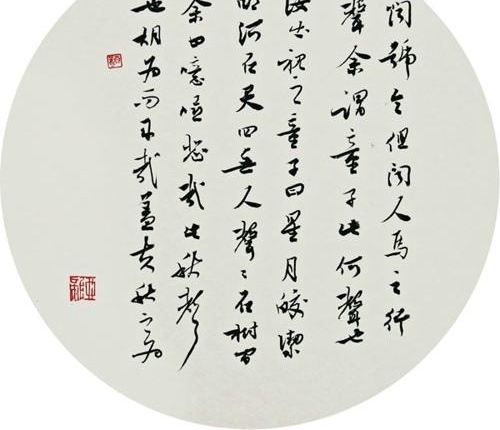 聞號令但聞人馬之行
聲余謂童子此何聲也
汝出視之童子曰星月皎潔
明河在天四無人聲〻在樹間
余曰噫嘻悲哉此秋聲
也胡為而来哉蓋夫秋之為